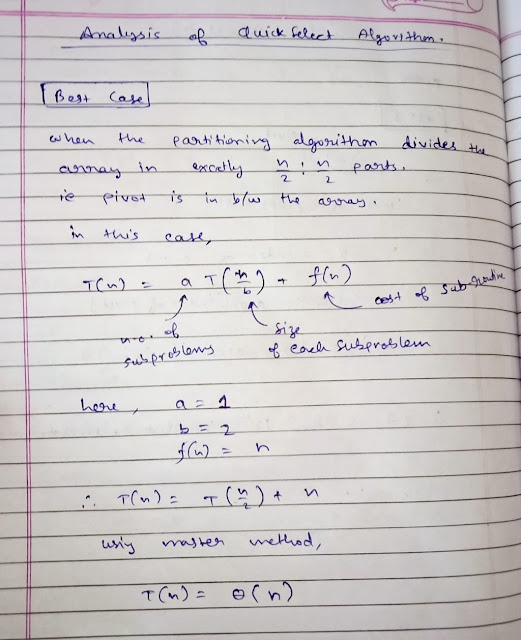 Analysis of Quick Select Algorithm.
Best Case
when the partitioning algorithm divides the
array in exactly n/2 : n/2 parts.
ie pivot is in b/w the array.
in this case,
T(n) = a T(n/b) + f(n)
n.o. of subproblems
size of each subproblem
cost of sub-routine
here, a = 1
b = 2
f(n) = n
∴ T(n) = T(n/2) + n
using master method,
T(n) = θ(n)